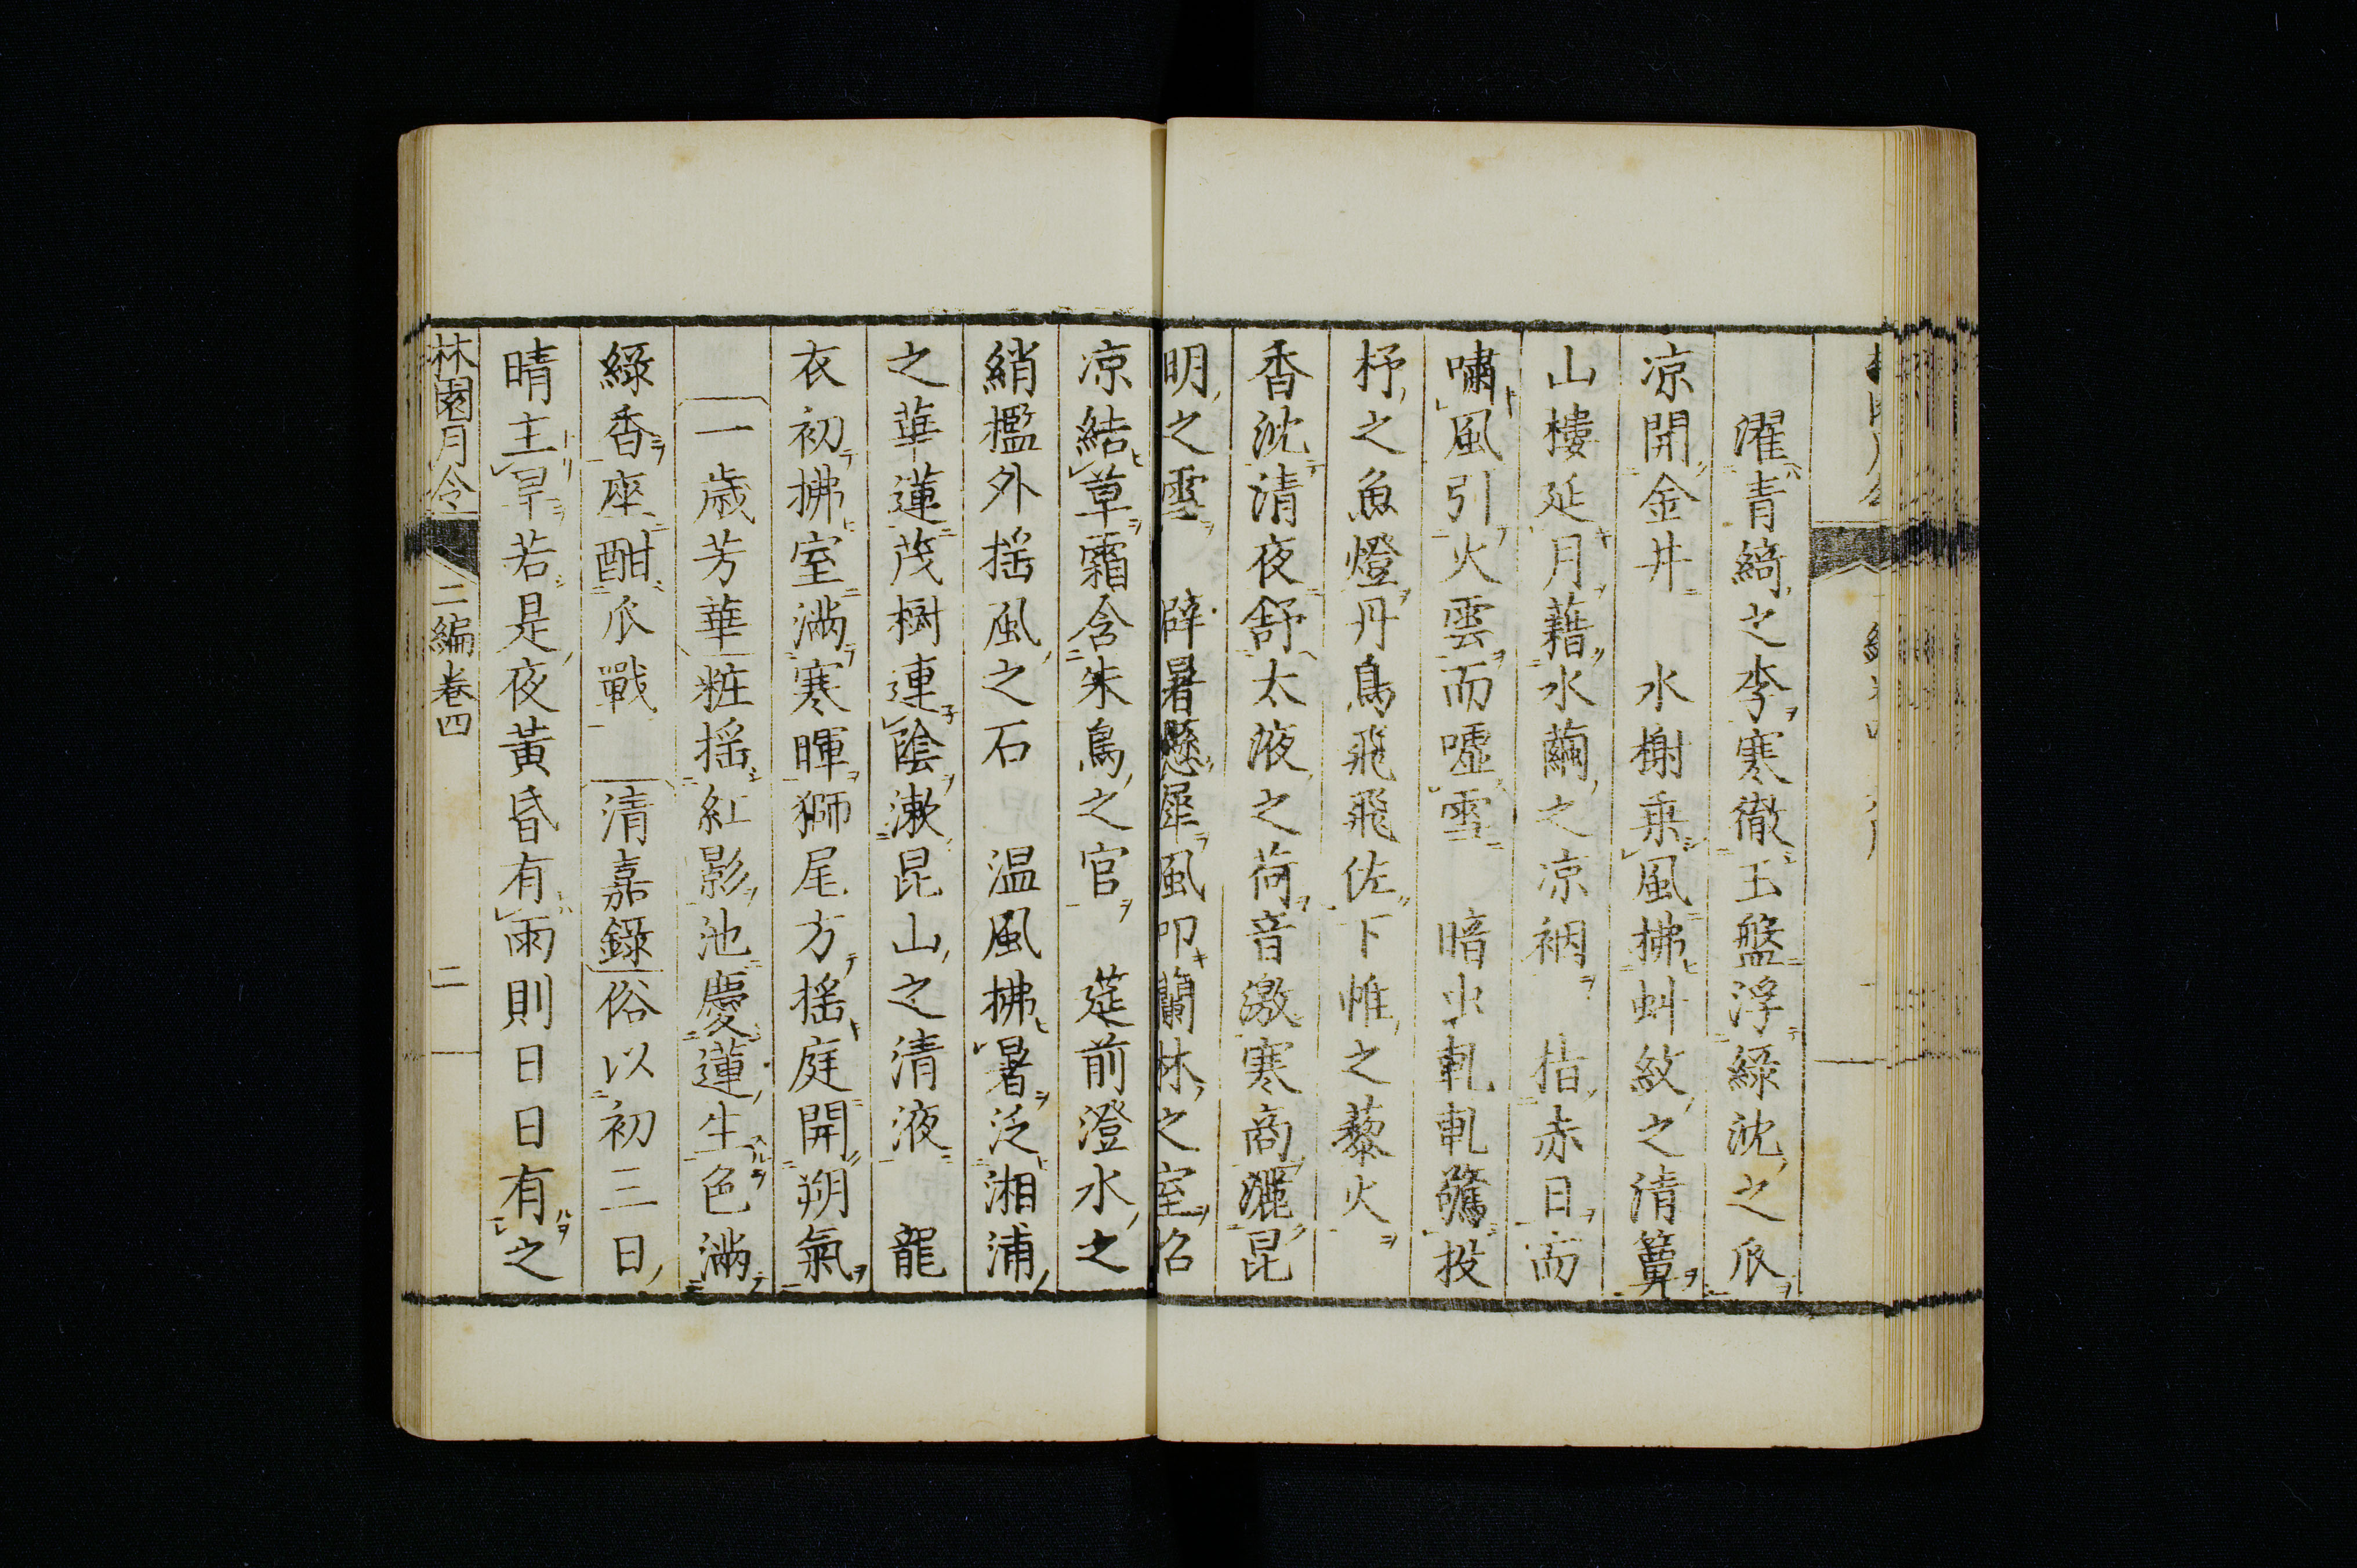 濯青綺之李寒徹玉盤浮綠沈之瓜
凉開金井　水榭乗風拂蚪紋之清簟
山樓延月藉水繭之凉裀　指赤日而
嘯風引火雲而噓雪　暗虫軋軋鳴投
杼之魚燈丹鳥飛飛佐下帷之藜火
香沈清夜舒太液之荷音激寒商灑昆
明之雪　辟暑懸犀風叩蘭林之室招
凉結草霜含朱鳥之官　筵前澄水之
綃檻外揺風之石　温風拂暑泛湘浦
之華蓮茂樹連陰漱昆山之清液　龍
衣初拂室満寒暉獅尾方揺庭開朔氣
一歳芳華粧揺紅影池慶蓮生色満
綠香座酣瓜戰　清嘉錄俗以初三日
晴主旱若是夜黃昏有雨則日日有之
林園月令　二編卷四　二